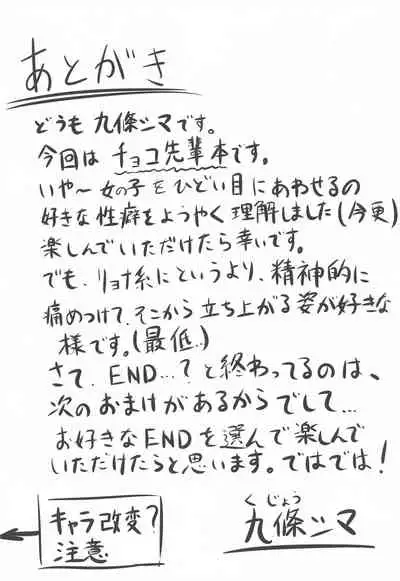 あとがき
どうも 九條シマです。
今回は チョコ先輩本です。
いや～女の子をひどい目にあわせるの
好きな性癖をようやく理解しました(今更)
楽しんでいただけたら幸いです。
でも、リョナ糸にというより、精神的に
痛めつけて、そこから立ち上がる姿が好きな
様です。(最低。)
さて、END…？と終わってるのは、
次のおまけがあるからでして…
お好きなENDを選んで楽しんで
いただけたらと思います。ではでは！
キャラ改変？
注意
く じょう
九條シマ